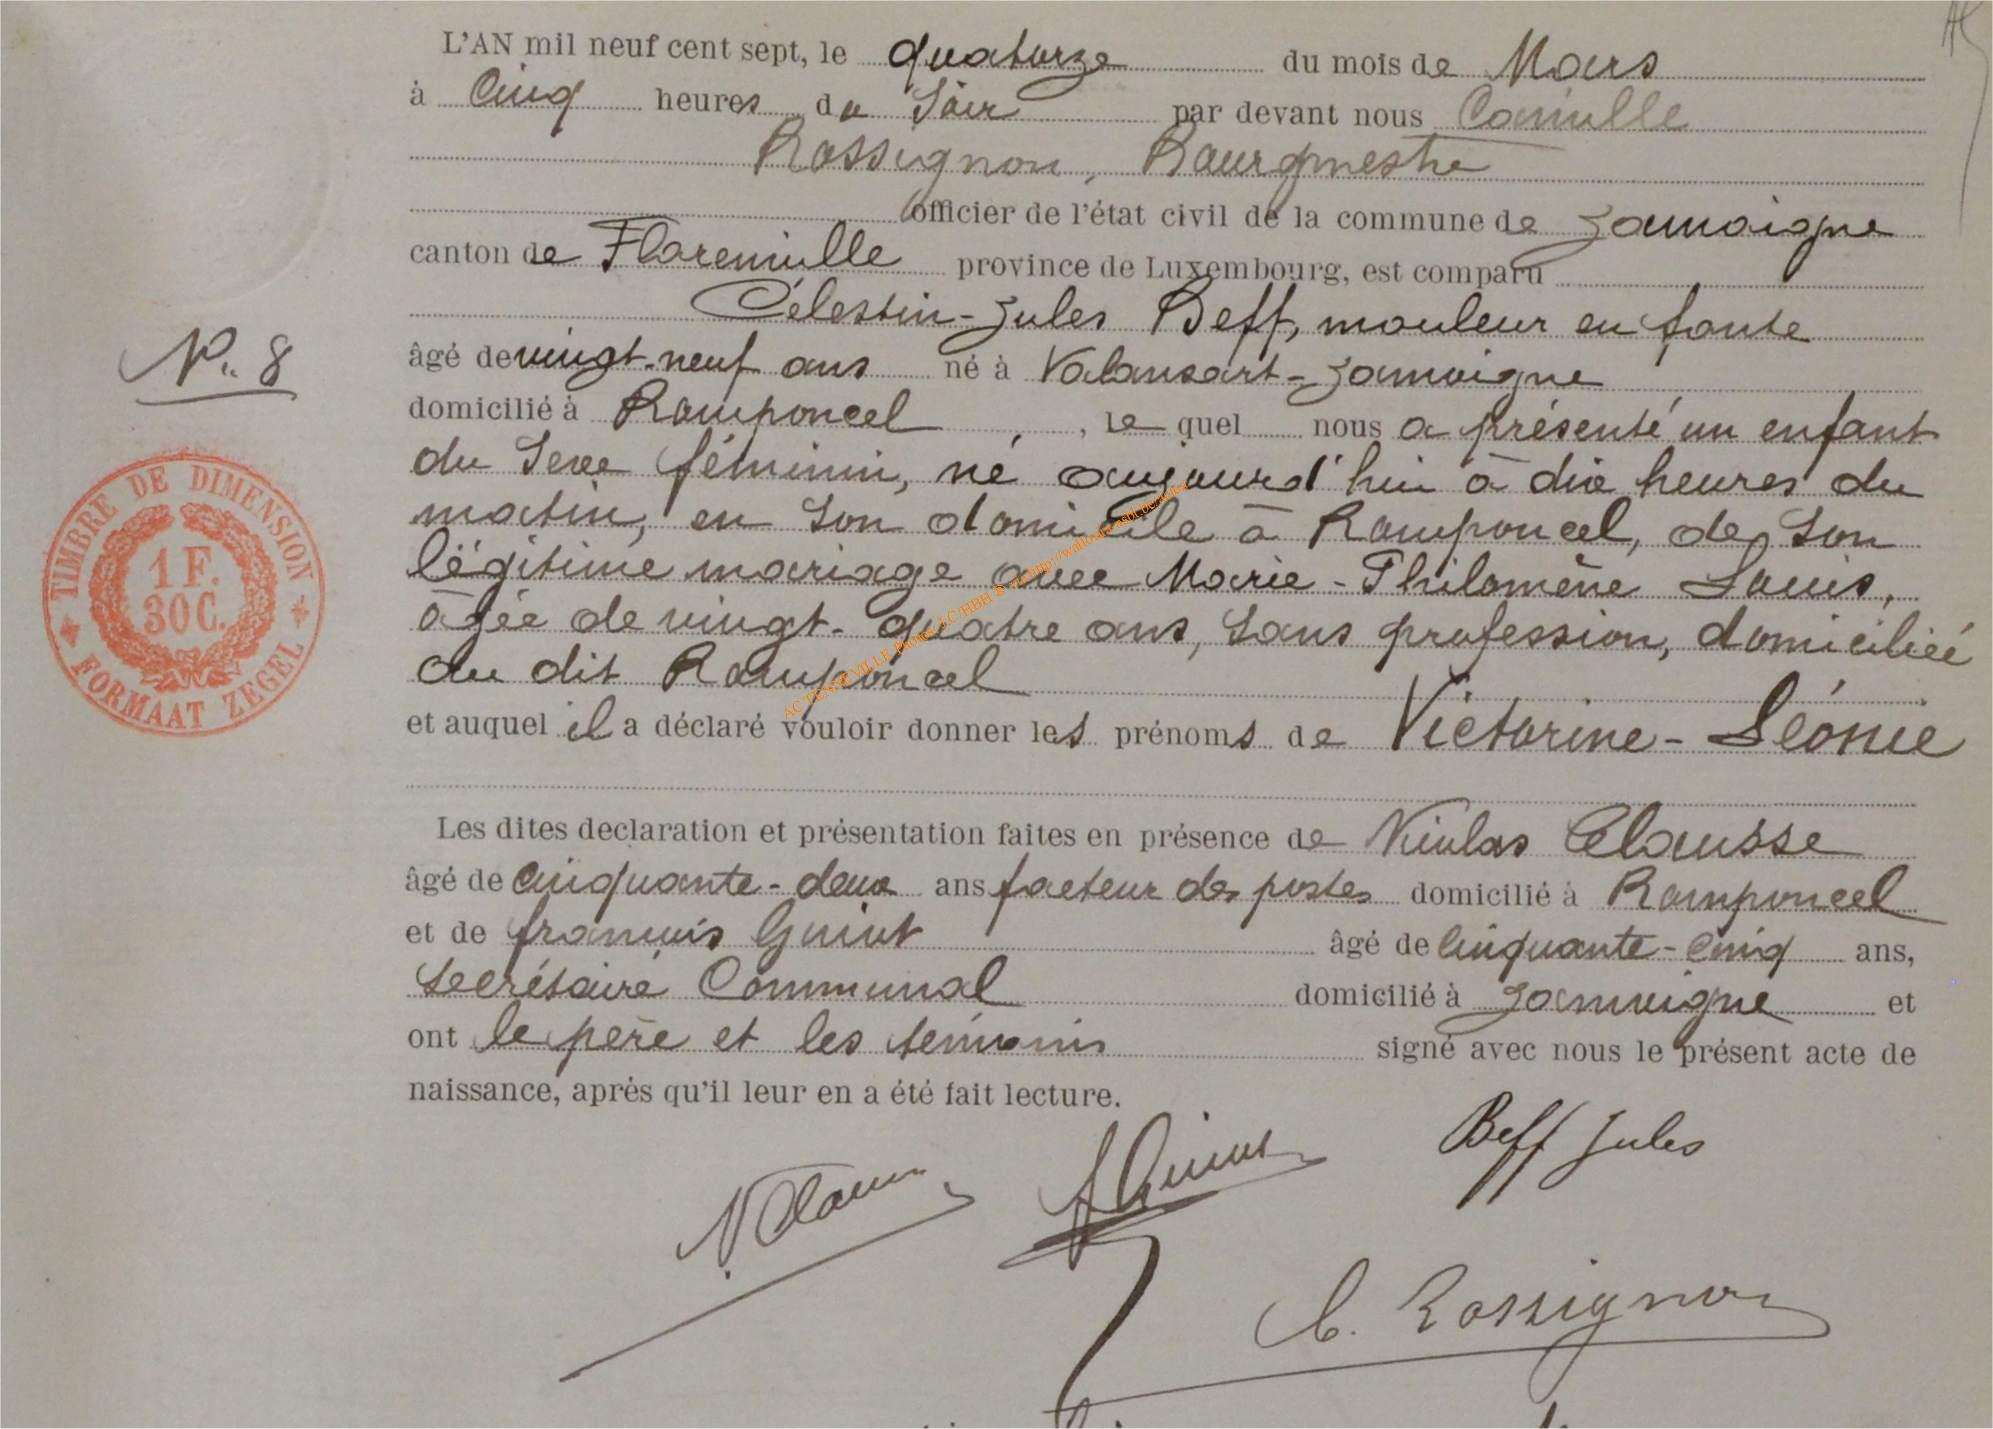 L'AN mil neuf cent sept, le quatorze du mois de Mars
à Cinq heures du Soir par devant nous Camille
Rossignon, Bourgmestre
officier de l'état civil de la commune de Jamoigne
canton de Florenville province de Luxembourg, est comparu
Célestin-Jules Beff, mouleur en fonte
âgé de vingt-neuf ans né à Valansart-Jamoigne
domicilié à Romponcel, le quel nous a présenté un enfant
N° 8
du Sexe féminin, né aujourd'hui à dix heures du
matin, en Son domicile à Romponcel, de Son
légitime mariage avec Marie-Philomène Louis,
âgée de vingt-quatre ans, Sans profession, domiciliée
au dit Romponcel
et auquel il a déclaré vouloir donner les prénoms de Victorine-Léonie
TIMBRE DE DIMENSION
1 F.
30 C.
FORMAAT ZEGEL
Les dites declaration et présentation faites en présence de Nicolas Clausse
âgé de cinquante-deux ans facteur des postes domicilié à Romponcel
et de françois Guiot âgé de Cinquante-cinq ans,
Secrétaire Communal domicilié à Jamoigne et
ont le père et les témoins signé avec nous le présent acte de
naissance, après qu'il leur en a été fait lecture.
Beff Jules
N Clausse
f Guiot
C. Rossignon